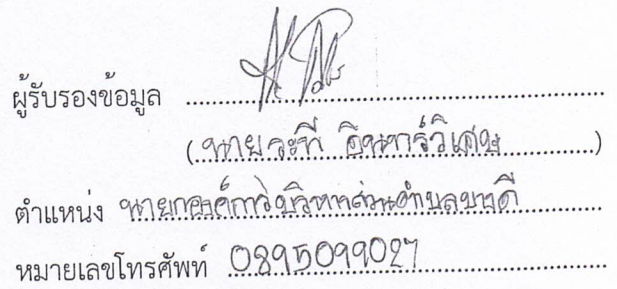 ผู้รับรองข้อมูล
(นายระที อินทร์วิเศษ)
ตำแหน่ง นายกองค์การบริหารส่วนตำบลบางดี
หมายเลขโทรศัพท์ 0895099027